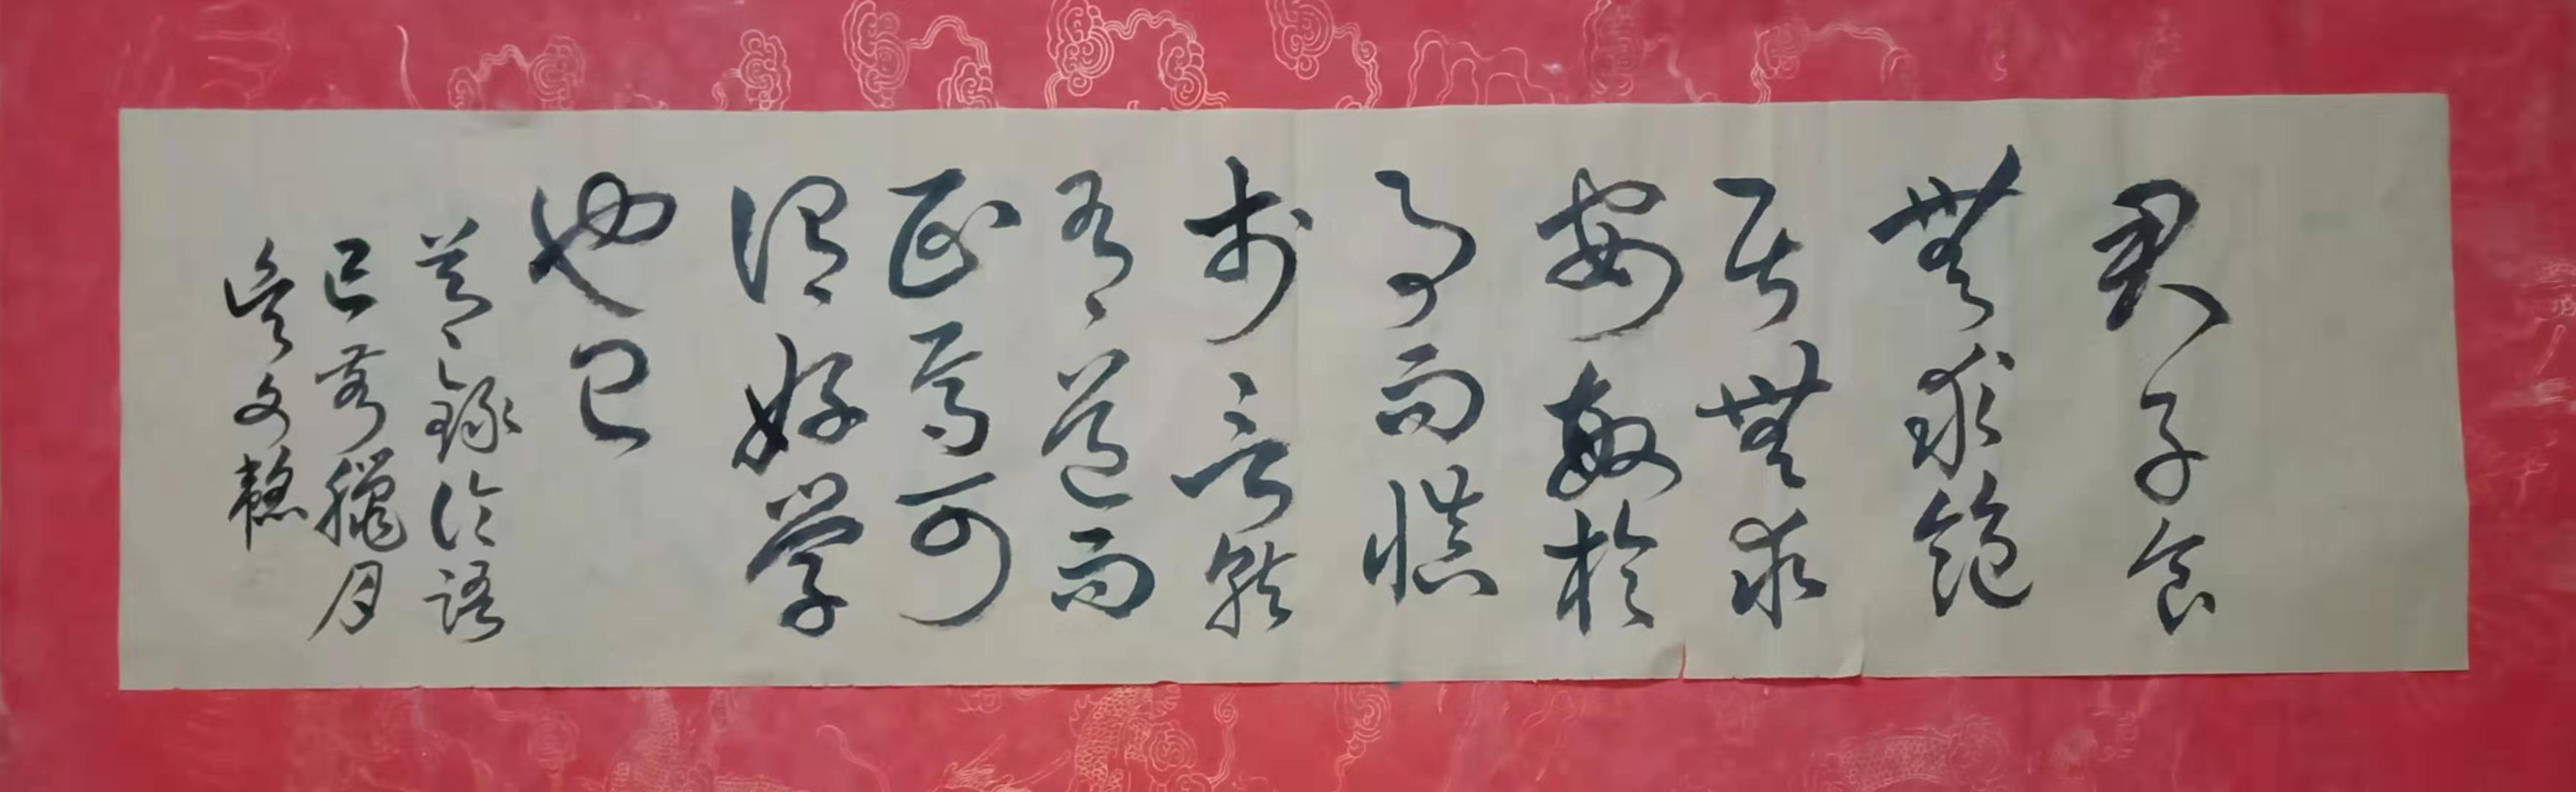 君子食
無求飽
居無求
安敏於
事而慎
於言就
有道而
正焉可
謂好学
也已
錄論語
己亥臘月
文